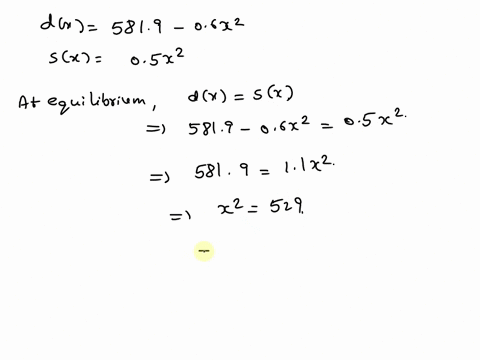 d(x) = 581.9 - 0.6x²
S(x) = 0.5x²
At equilibrium, d(x) = S(x)
=) 581.9 - 0.6x² = 0.5x².
=) 581.9 = 1.1x².
=) x² = 529.